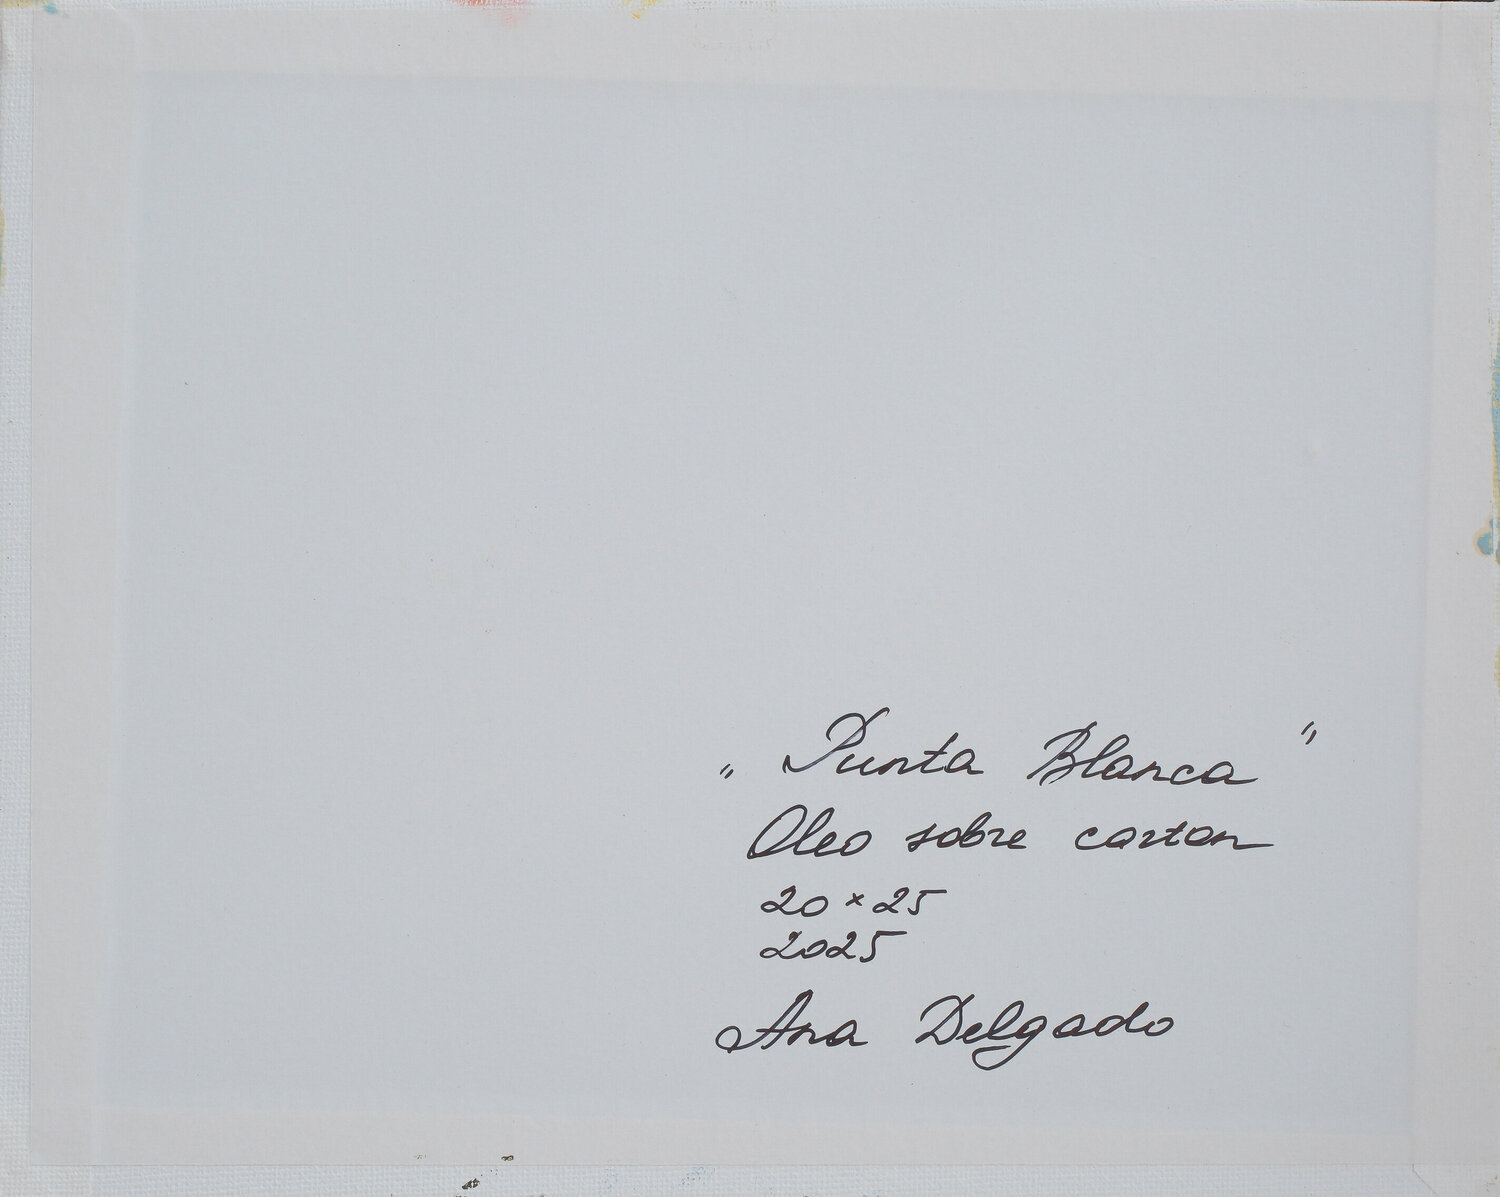 „ Punta Blanca "
Oleo sobre carton
20 × 25
2025
Ana Delgado